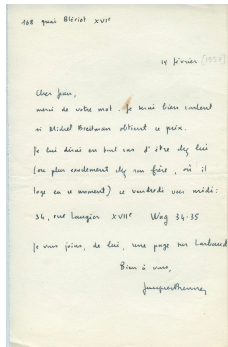 168 quai Blériot XVIe
14 février [195?]
Cher Jean,
merci de votre mot. Je serai bien content
si Michel Breitman obtient ce prix.
Je lui dirai en tout cas d'être chez lui
(ou plus exactement chez son frère, où il
loge en ce moment) ce vendredi vers midi :
34, rue Laugier XVIIe Wag 34-35
Je vous joins, de lui, une page sur Larbaud
Bien à vous,
Jacques Brenner